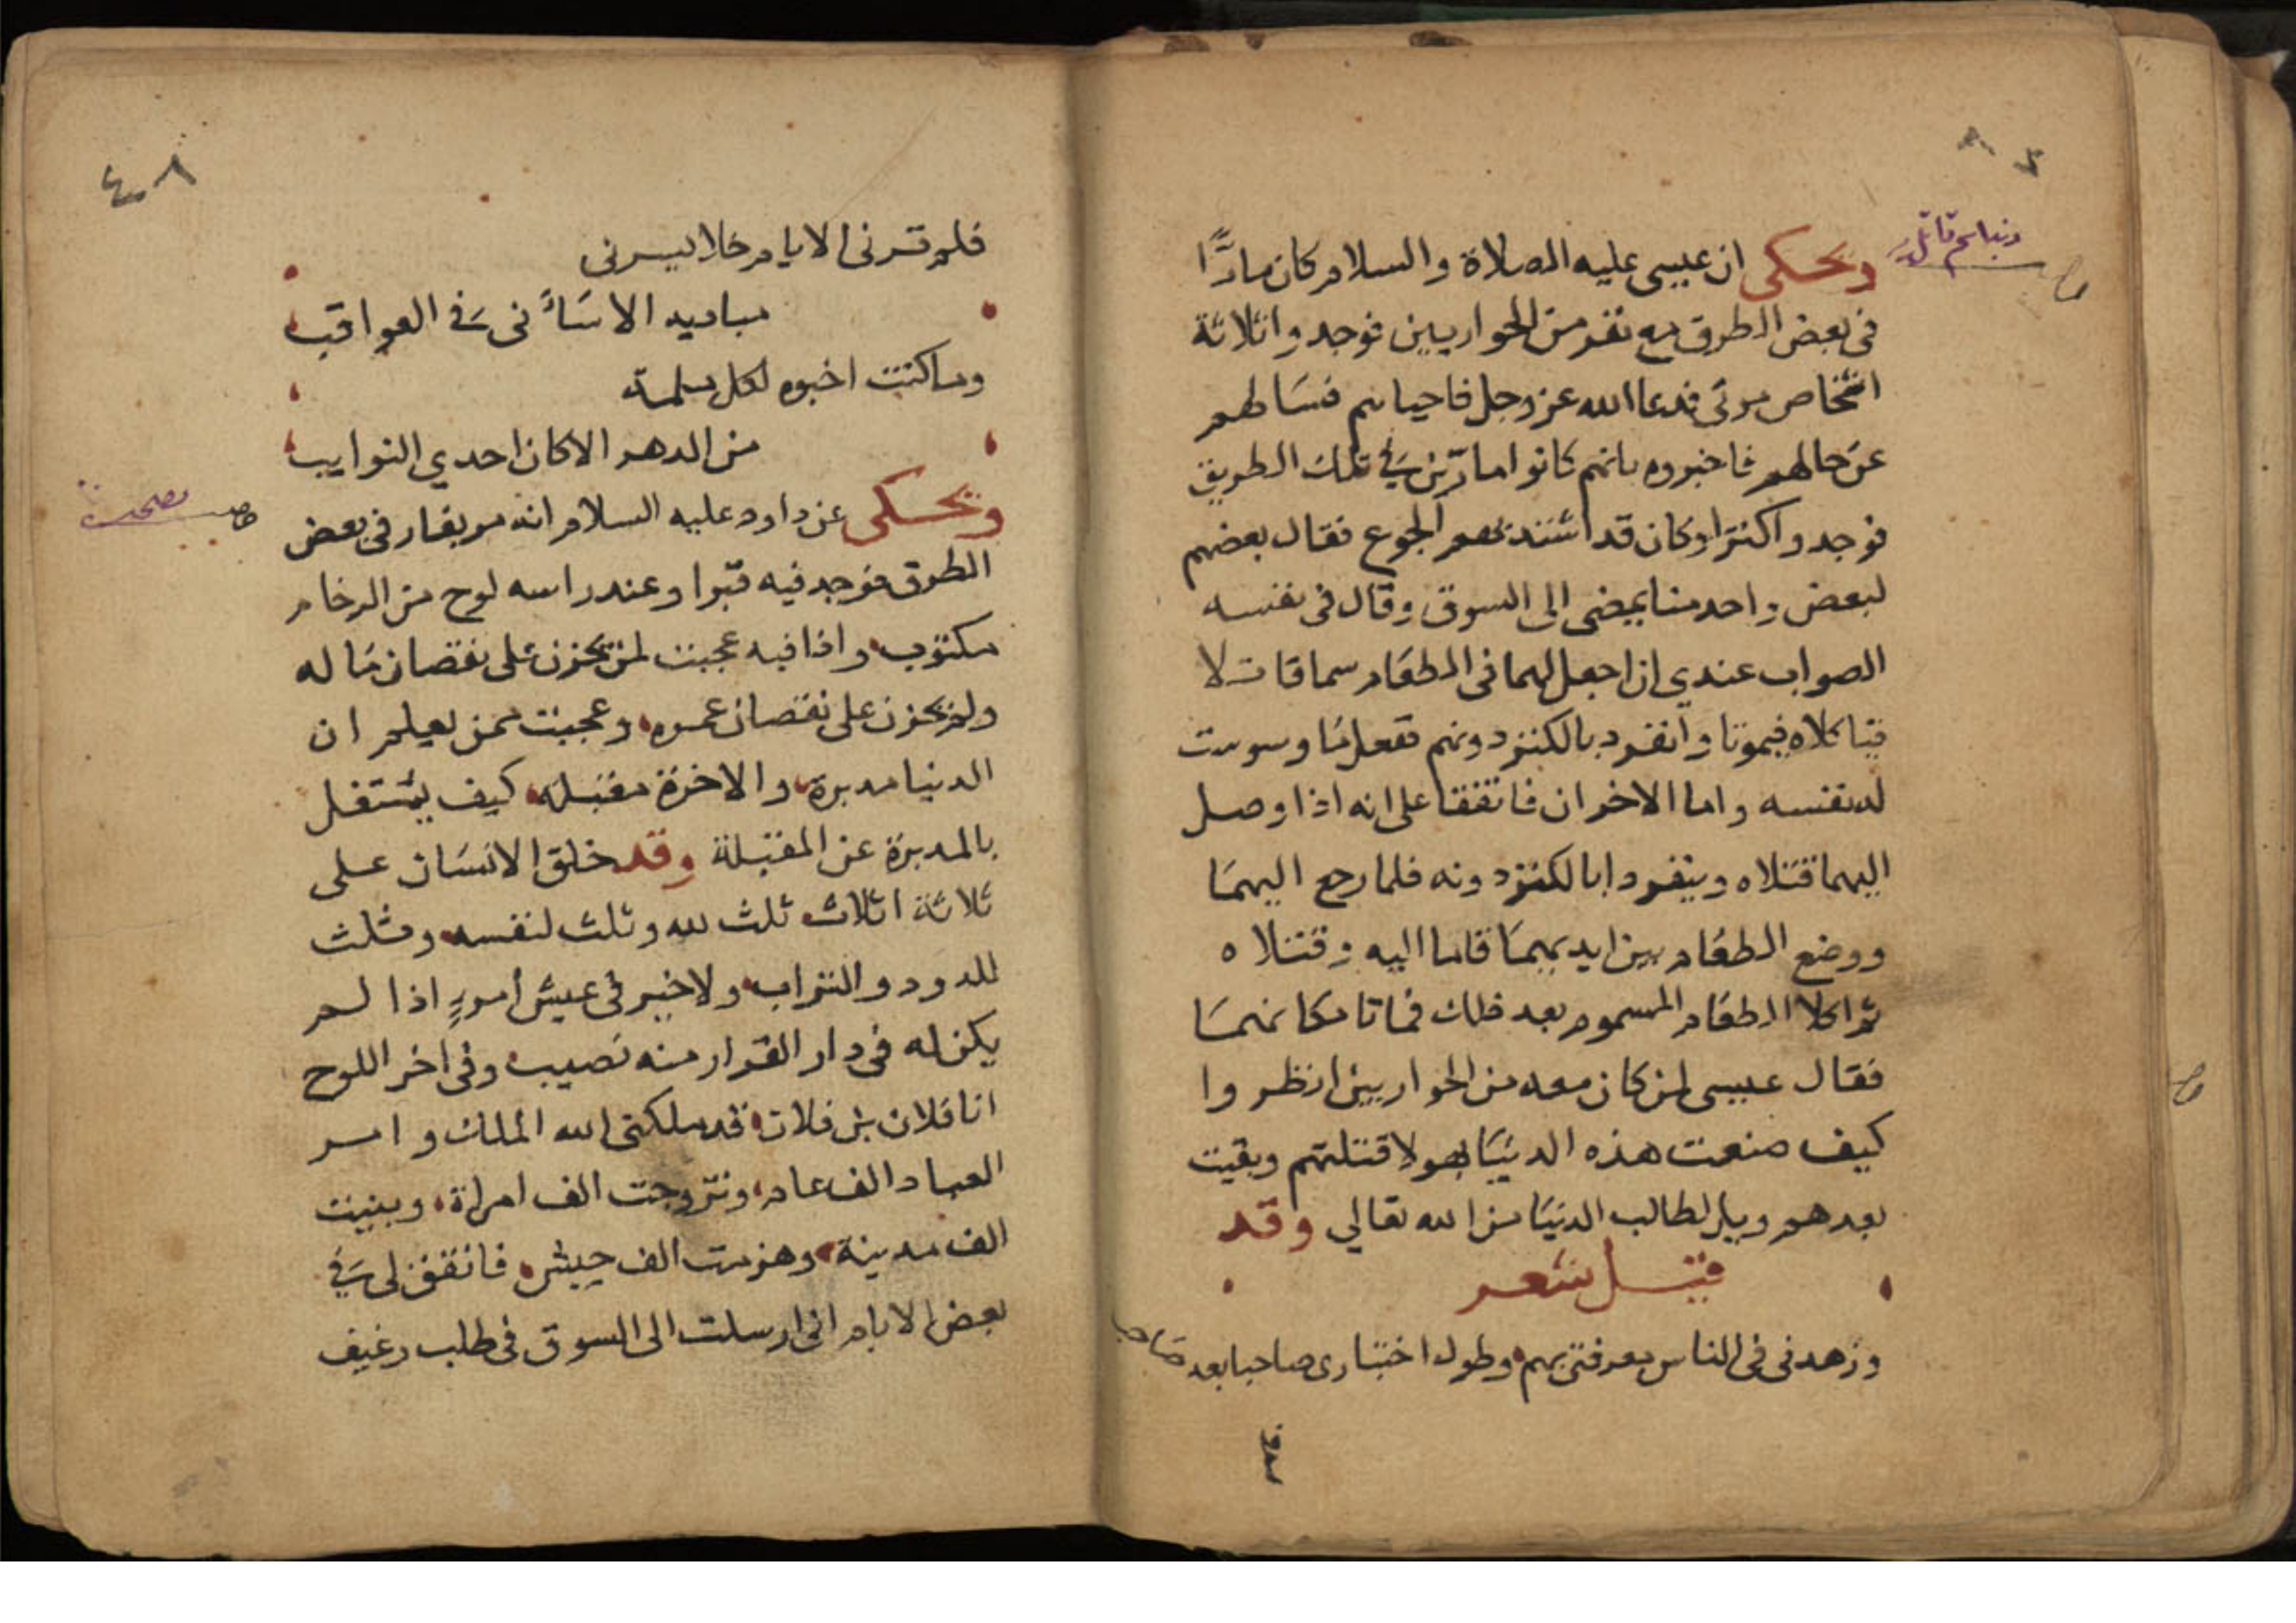 ويحكى ان عيسى عليه الصلاة والسلام كان مارًّا
فى بعض الطرق مع نفر من الحواريين فوجدوا ثلاثة
اشخاص موتى فدعا الله عز وجل فاحياهم فسالهم
عن حالهم فاخبروه بانهم كانوا مارّين فى تلك الطريق
فوجدوا كنزا وكان قد اشتد بهم الجوع فقال بعضهم
لبعض واحد منا يمضى الى السوق وقال فى نفسه
الصواب عندي ان اجعل لهما فى الطعام سما قاتلا
فياكلاه فيموتا وانفرد بالكنز دونهم ففعل ما وسوست
له نفسه واما الاخران فاتفقا على انه اذا وصل
اليهما قتلاه وينفردا بالكنز دونه فلما رجع اليهما
ووضع الطعام بين ايديهما قاما اليه وقتلاه
ثم اكلا الطعام المسموم بعد ذلك فماتا مكانهما
فقال عيسى لمن كان معه من الحواريين انظروا
كيف صنعت هذه الدنيا بهولا قتلتهم وبقيت
بعدهم ويل لطالب الدنيا من الله تعالي وقد
قيل شعر
وزهدنى فى الناس معرفتى بهم وطول اختبارى صاحبا بعد صاحب
٤٨
فلم ترنى الايام خلا يسرنى
مباديه الا ساءنى فى العواقب
وما كنت اخبوه لكل ملمة
من الدهر الا كان احدي النوايب
ويحكى عن داود عليه السلام انه مر بغار فى بعض
الطرق فوجد فيه قبرا وعند راسه لوح من الرخام
مكتوب واذا فيه عجبت لمن يحزن على نقصان ماله
ولم يحزن على نقصان عمره وعجبت لمن يعلم ان
الدنيا مدبرة والاخرة مقبلة كيف يشتغل
بالمدبرة عن المقبلة وقد خلق الانسان على
ثلاثة اثلاث ثلث لله وثلث لنفسه وثلث
للدود والتراب ولا خير فى عيش أمورٍ اذا لم
يكن له فى دار القرار منه نصيب وفى اخر اللوح
انا فلان بن فلان قد ملكنى الله الملك وامر
العباد الف عام وتزوجت الف امراة وبنيت
الف مدينة وهزمت الف جيش فاتفق لى فى
بعض الايام انى ارسلت الى السوق فى طلب رغيف